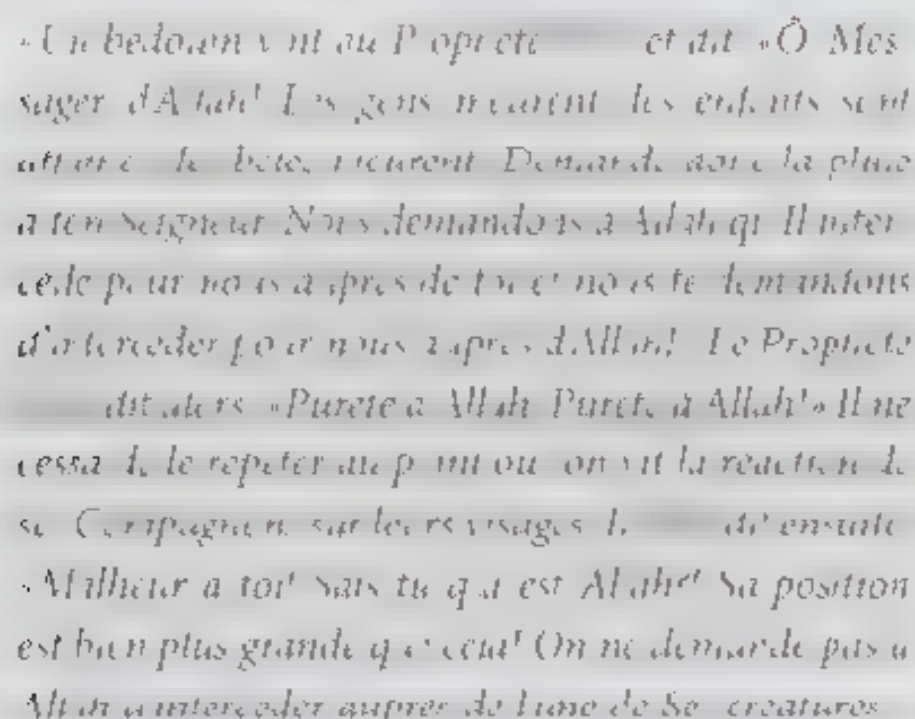 «Un bédouin vint au Prophète et dit «Ô Mes-
sager d'Allah! Les gens meurent les enfants sont
les bêtes meurent Demande donc la pluie
à ton Seigneur Nous demandons à Allah qu'Il inter-
cède pour nous auprès de toi et nous te demandons
d'intercéder pour nous auprès d'Allah! Le Prophète
dit alors «Pureté à Allah Pureté à Allah!» Il ne
cessa de le répéter au point où on vit la réaction de
se Compagnons sur leurs visages Il dit ensuite
«Malheur à toi! Sais tu qui est Allah? Sa position
est bien plus grande que cela! On ne demande pas à
Allah à intercéder auprès de l'une de Ses créatures